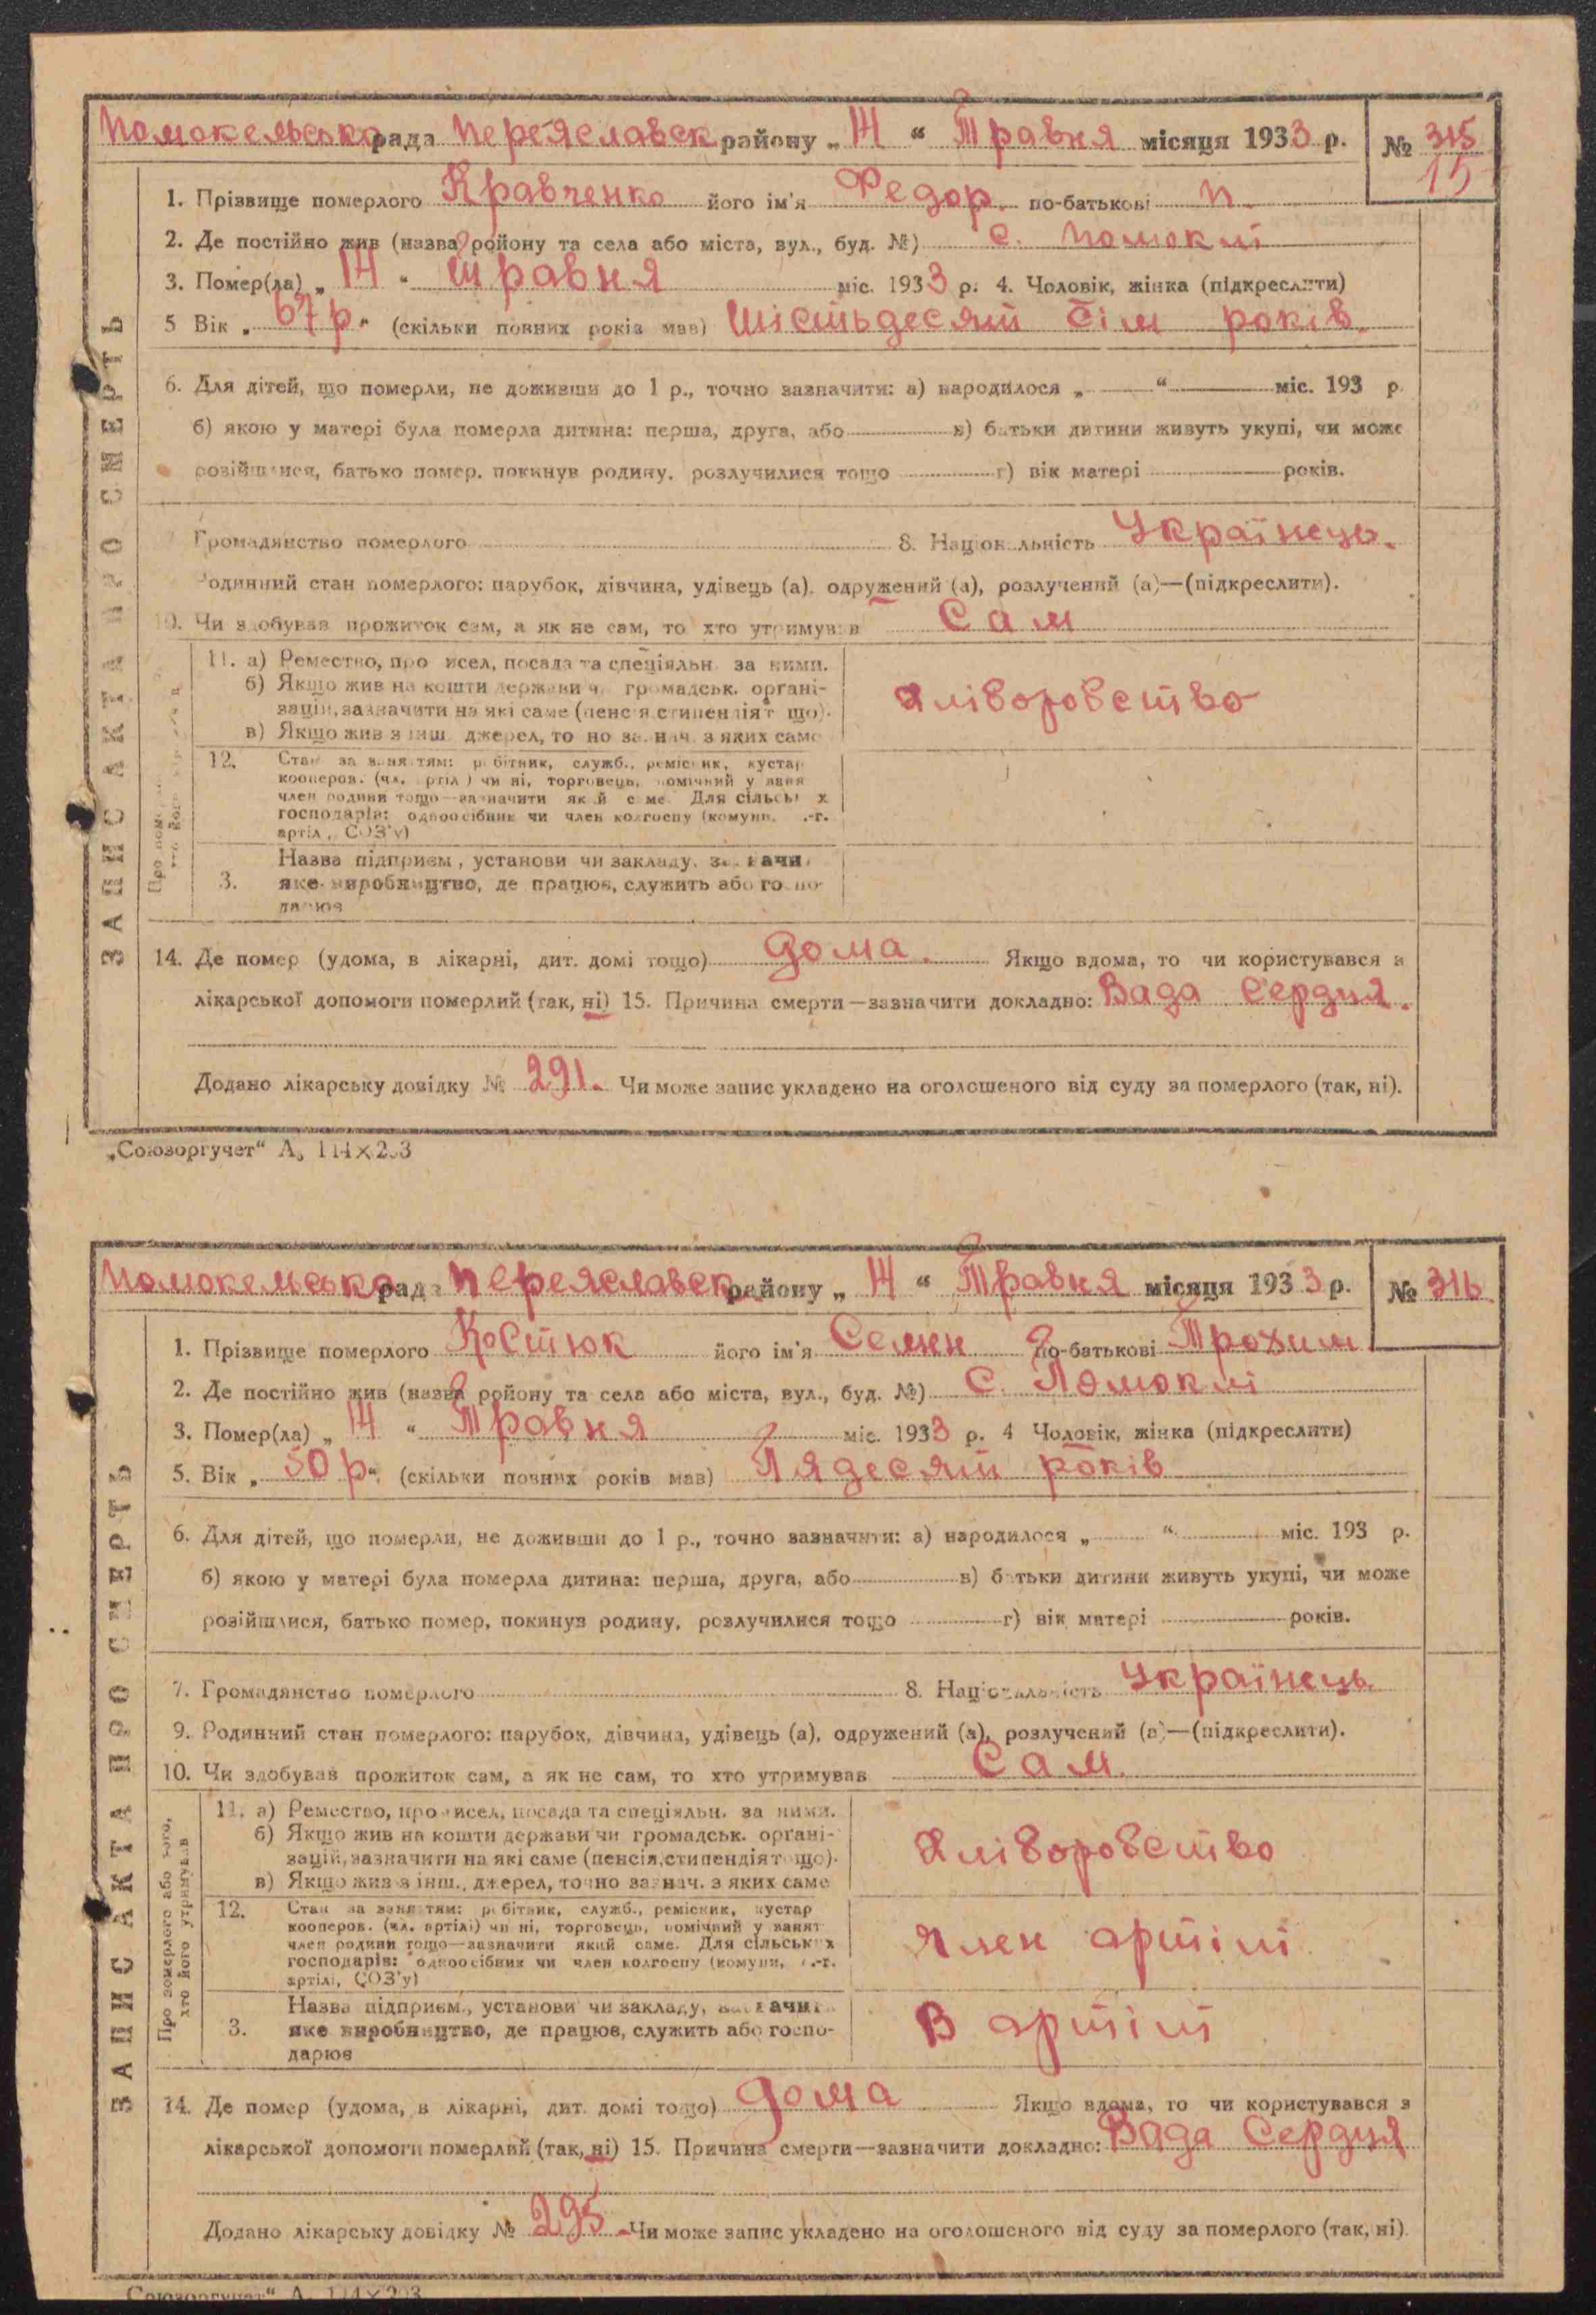 Помокельська рада Переяславск району „ 14 “ Травня місяця 1933 р. № 315
15
1. Прізвище померлого Кравченко його ім'я Федор. по-батькові П.
2. Де постійно жив (назва ройону та села або міста, вул., буд. №) с. Помоклі
3. Помер(ла) „ 14 “ травня міс. 1933 р. 4. Чоловік, жінка (підкреслити)
5 Вік „ 67 р. “ (скільки повних років мав) Шістьдесят сім років.
6. Для дітей, що померли, не доживши до 1 р., точно зазначити: а) народилося „ “ міс. 193 р.
б) якою у матері була померла дитина: перша, друга, або в) батьки дитини живуть укупі, чи може
розійшлися, батько помер, покинув родину, розлучилися тощо г) вік матері років.
7 Громадянство померлого 8. Національність Українець.
Родинний стан померлого: парубок, дівчина, удівець (а), одружений (а), розлучений (а)—(підкреслити).
10. Чи здобував прожиток сам, а як не сам, то хто утримував Сам
ЗАПИС АКТА ПРО СМЕРТЬ
11. а) Ремество, про исел, посада та спеціяльн. за ними.
б) Якщо жив на кошти держави ч. громадськ. органі-
зацій, зазначити на які саме (пенсія, стипендія т що).
в) Якщо жив з інш. джерел, то но зазнач. з яких саме
Хліборобство
12. Стан за заняттям: робітник, служб., ремісник, кустар
кооперов. (чл. ртіл ) чи ні, торговець, помічний у занят
член родини тощо—зазначити який саме. Для сільськ х
господарів: одноосібник чи член колгоспу (комуни, .-г.
артіл , СОЗ'у)
3. Назва підприєм , установи чи закладу, зазначи
яке виробництво, де працює, служить або госпо-
дарює
14. Де помер (удома, в лікарні, дит. домі тощо) Дома. Якщо вдома, то чи користувався з
лікарської допомоги померлий (так, ні) 15. Причина смерти—зазначити докладно: Вада Сердця.
Додано лікарську довідку № 291. Чи може запис укладено на оголошеного від суду за померлого (так, ні).
„Союзоргучет“ А
Помокельська рада Переяславск району „ 14 “ Травня місяця 1933 р. № 316.
1. Прізвище померлого Костюк його ім'я Семен по-батькові Трохим
2. Де постійно жив (назва ройону та села або міста, вул., буд. №) С. Помоклі
3. Помер(ла) „ 14 “ Травня міс. 1933 р. 4 Чоловік, жінка (підкреслити)
5. Вік „ 50 р “. (скільки повних років мав) Пядесят років
6. Для дітей, що померли, не доживши до 1 р., точно зазначити: а) народилося „ “ міс. 193 р.
б) якою у матері була померла дитина: перша, друга, або в) батьки дитини живуть укупі, чи може
розійшлися, батько помер, покинув родину, розлучилися тощо г) вік матері років.
7. Громадянство померлого 8. Національність Українець.
9. Родинний стан померлого: парубок, дівчина, удівець (а), одружений (а), розлучений (а)—(підкреслити).
10. Чи здобував прожиток сам, а як не сам, то хто утримував Сам.
ЗАПИС АКТА ПРО СМЕРТЬ
Про померлого або того,
хто його утримував
11. а) Ремество, про исел, посада та спеціяльн. за ними.
б) Якщо жив на кошти держави чи громадськ. органі-
зацій, зазначити на які саме (пенсія, стипендія т що).
в) Якщо жив з інш., джерел, точно зазнач. з яких саме
Хліборобство
12. Стан за заняттям: робітник, служб., ремісник, кустар
кооперов. (чл. артілі) чи ні, торговець, помічний у занят
член родини тощо—зазначити який саме. Для сільських
господарів: одноосібник чи член колгоспу (комуни, .-г.
артілі, СОЗ'у)
Член артілі
3. Назва підприєм., установи чи закладу, зазначит
яке виробництво, де працює, служить або госпо-
дарює
В артілі
14. Де помер (удома, в лікарні, дит. домі тощо) Дома Якщо вдома, то чи користувався з
лікарської допомоги померлий (так, ні) 15. Причина смерти—зазначити докладно: Вада Сердця
Додано лікарську довідку № 295. Чи може запис укладено на оголошеного від суду за померлого (так, ні).
Союзоргучет“ А